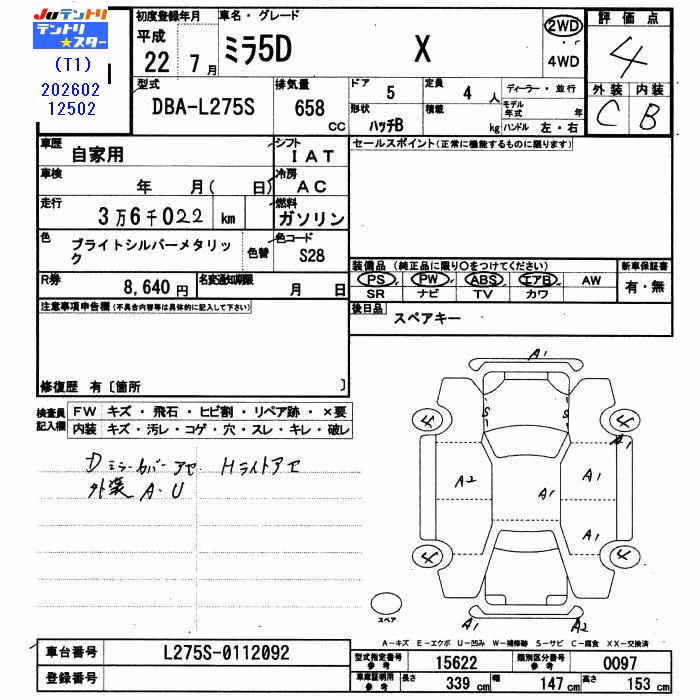 JUテントリ
テントリ★スター
(T1)
202602
12502
初度登録年月
平成
22 7月
車名・グレード
ミラ5D X
2WD
4WD
評価点
4
外装 内装
C B
型式
DBA-L275S
排気量
658
CC
ドア 5
定員 4 人
形状 ハッチB
積載 kg
ディーラー・並行
モデル年式 年
ハンドル 左・右
車歴 自家用
シフト IAT
車検 年 月( 日)
冷房 AC
走行 3万6千022 km
燃料 ガソリン
色 ブライトシルバーメタリック
色替
色コード S28
R券 8,640円
名変通知期限 月 日
セールスポイント(正常に機能するものに限ります)
装備品(純正品に限り〇をつけてください)
新車保証書
PS PW ABS エアB AW
有・無
SR ナビ TV カワ
後日品 スペアキー
注意事項申告欄(不具合内容等は具体的に記入して下さい)
修復歴 有〔箇所 〕
検査員記入欄
FW キズ・飛石・ヒビ割・リペア跡・×要
内装 キズ・汚レ・コゲ・穴・スレ・キレ・破レ
Dミラーカバーアセ Hライトアセ
外装 A・U
A1
S S
4 4
A1
A2 A1 A1
A1
4 4
A1 A2
スペア
A-キズ E-エクボ U-凹み W-補修跡 S-サビ C-腐食 XX-交換済
車台番号 L275S-0112092
登録番号
型式指定番号 参考 15622
類別区分番号 参考 0097
車庫証明用 参考 長さ 339 cm 幅 147 cm 高さ 153 cm